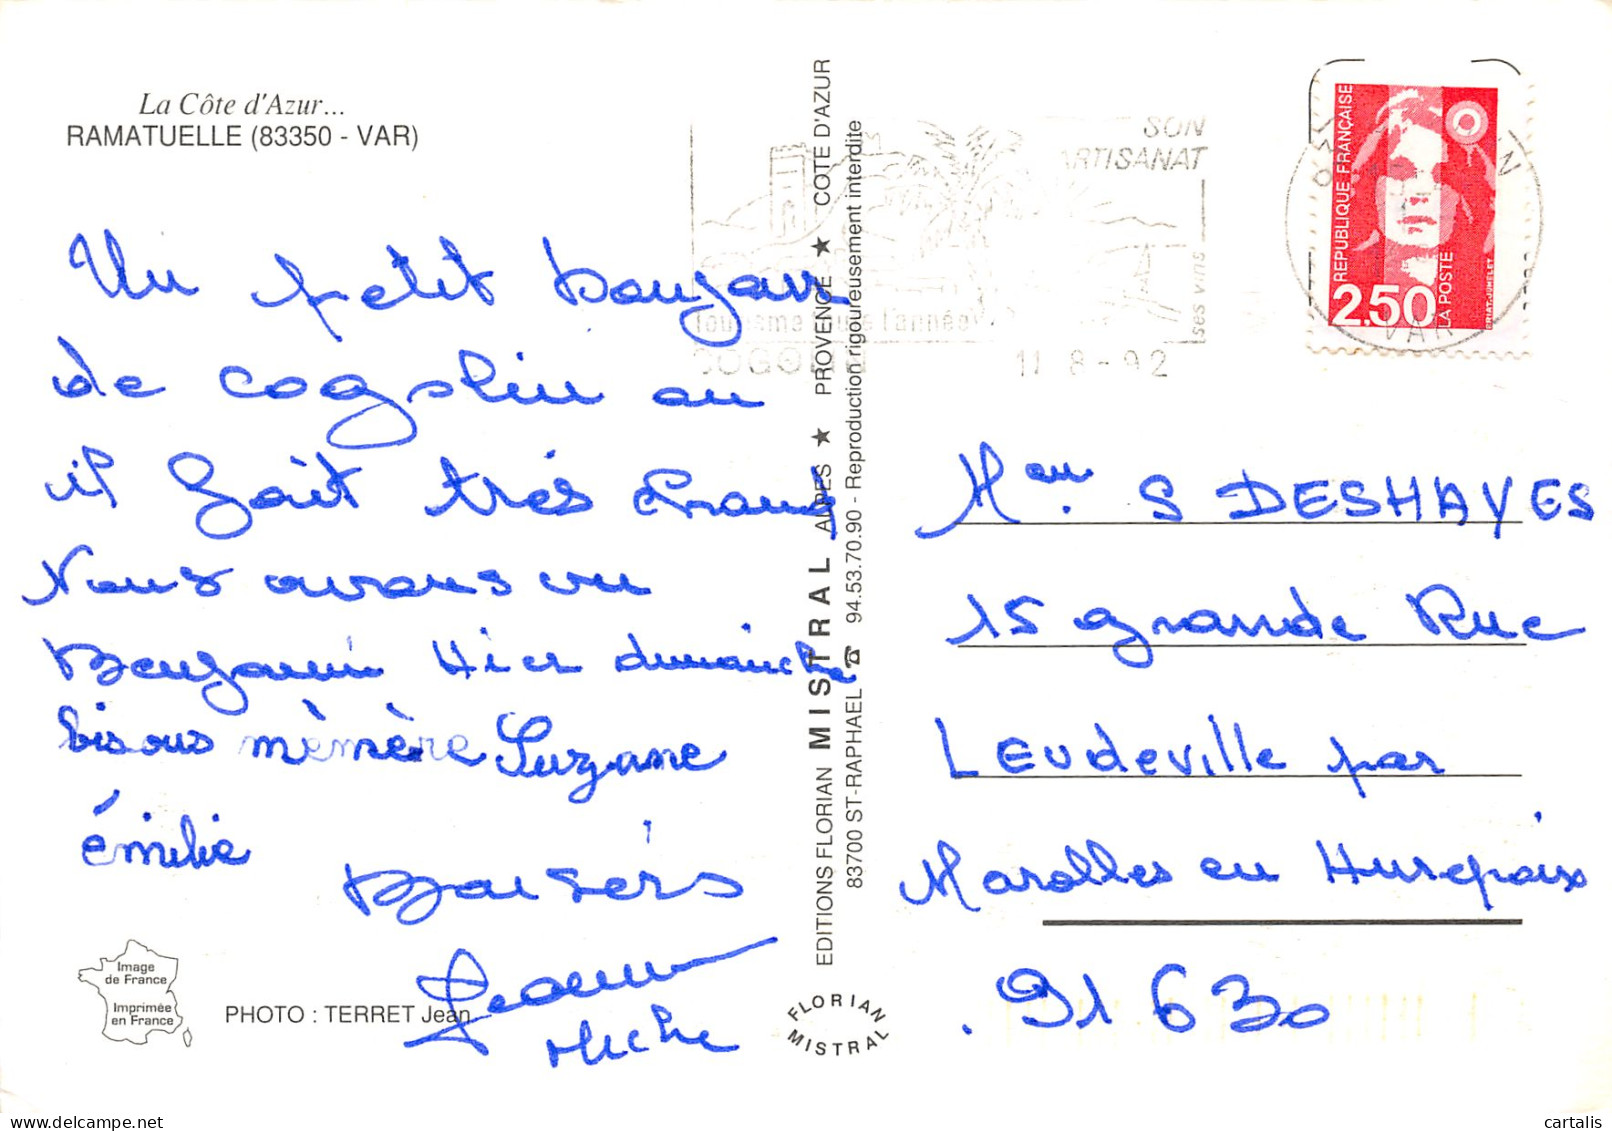 La Côte d'Azur...
RAMATUELLE (83350 - VAR)
Un petit bonjour
de cogolin au
il fait très chaud
Nous avons vu
Benjamin Hier dimanche
bisous mèmère Suzane
émilie
Baisers
Jeannine
Miche
Image
de France
Imprimée
en France
PHOTO : TERRET Jean
EDITIONS FLORIAN MISTRAL ALPES ★ PROVENCE ★ COTE D'AZUR
83700 ST-RAPHAEL ☎ 94.53.70.90 - Reproduction rigoureusement interdite
FLORIAN
MISTRAL
SON
ARTISANAT
ses vins
Tourisme toute l'année
COGOLIN
11 8 - 92
REPUBLIQUE FRANÇAISE
2,50
LA POSTE
BRIAT-JUMELET
VAR
Mem. S DESHAYES
15 grande Rue
LEUdeville par
Marolles en Hurepoix
. 91 630